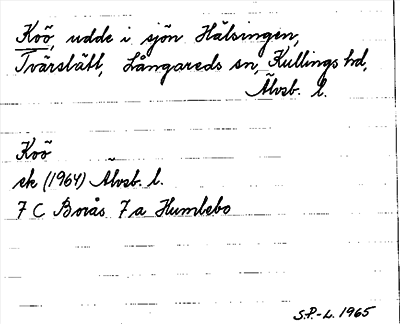 Koö, udde i sjön Hälsingen,
Tvärslätt, Långareds sn, Kullings hd,
Älvsb. l.
Koö
ek (1964) Älvsb. l.
7 C Borås 7 a Humlebo
S.P.-L. 1965